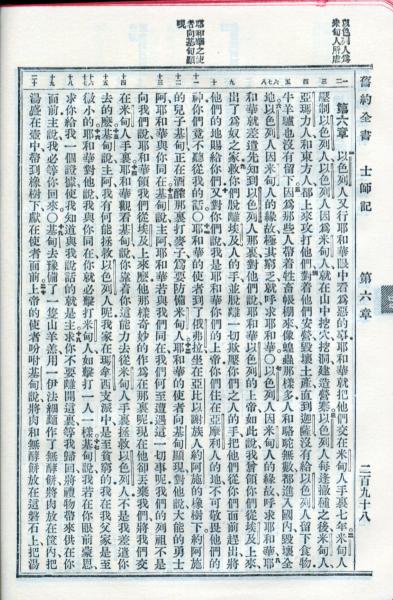 舊約全書 士師記 第六章 二百九十八
以色列人爲
米甸人所虐
耶和華之使
者向基甸顯
現
第六章 以色列人又行耶和華眼中看爲惡的事耶和華就把他們交在米甸人手裏七年米甸人
壓制以色列人以色列人因爲米甸人就在山中挖穴挖洞建造營寨以色列人每逢撒種之後米甸人
亞瑪力人和東方人都上來攻打他們對着他們安營毀壞土產直到迦薩沒有給以色列人留下食物
牛羊驢也沒有留下因爲那些人帶着牲畜帳棚來像蝗蟲那樣多人和駱駝無數都進入國內毀壞全
地以色列人因米甸人的緣故極其窮乏就呼求耶和華○以色列人因米甸人的緣故呼求耶和華耶
和華就差先知到以色列人那裏對他們說耶和華以色列的上帝如此說我曾領你們從埃及上來
出了爲奴之家救你們脫離埃及人的手並脫離一切欺壓你們之人的手把他們從你們面前趕出將
他們的地賜給你們又對你們說我是耶和華你們的上帝你們住在亞摩利人的地不可敬畏他們的
神你們竟不聽從我的話○耶和華的使者到了俄弗拉坐在亞比以謝族人約阿施的橡樹下約阿施
的兒子基甸正在酒醡那裏打麥子爲要防備米甸人耶和華的使者向基甸顯現對他說大能的勇士
阿耶和華與你同在基甸說主阿耶和華若與我們同在我們何至遭遇這一切事呢我們的列祖不是
向我們說耶和華領我們從埃及上來麼他那樣奇妙的作爲在那裏呢現在他卻丟棄我們將我們交
在米甸人手裏耶和華觀看基甸說你靠着你這能力去從米甸人手裏拯救以色列人不是我差遣你
去的麼基甸說主阿我有何能拯救以色列人呢我家在瑪拿西支派中是至貧窮的我在我父家是至
微小的耶和華對他說我與你同在你就必擊打米甸人如擊打一人一樣基甸說我若在你眼前蒙恩
求你給我一個證據使我知道與我說話的就是主求你不要離開這裏等我歸回將禮物帶來供在你
面前主說我必等你回來○基甸去豫備了一隻山羊羔用一伊法細麵作了無酵餅將肉放在筐內把
湯盛在壺中帶到橡樹下獻在使者面前上帝的使者吩咐基甸說將肉和無酵餅放在這磐石上把湯